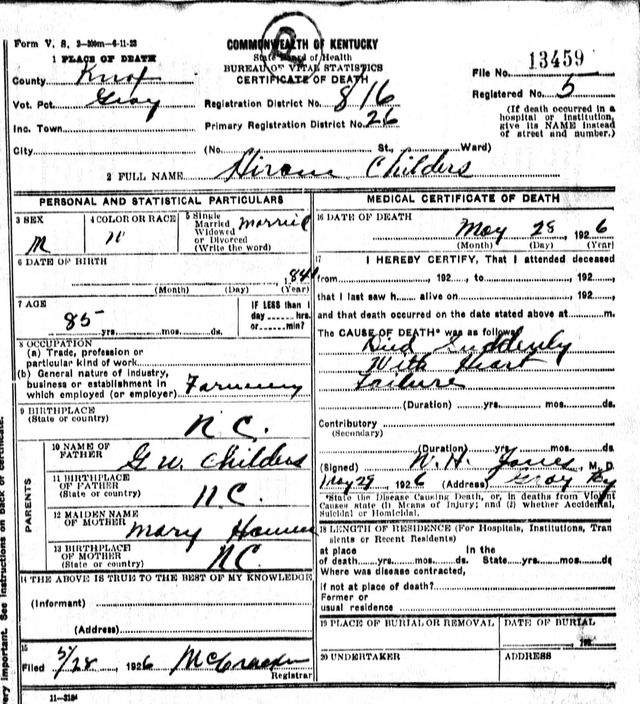 Form V. S. 2-200m-6-11-23
COMMONWEALTH OF KENTUCKY
State Board of Health
BUREAU OF VITAL STATISTICS
CERTIFICATE OF DEATH
1 PLACE OF DEATH
County Knox
Vot. Pct. Gray
Inc. Town
City
Registration District No. 816
Primary Registration District No. 26
(No. St., Ward)
File No. 13459
Registered No. 5
(If death occurred in a
hospital or institution,
give its NAME instead
of street and number.)
2 FULL NAME Hiram Childers
PERSONAL AND STATISTICAL PARTICULARS
3 SEX M
4 COLOR OR RACE W
5 Single
Married
Widowed
or Divorced
(Write the word)
Married
6 DATE OF BIRTH
, 1841
(Month) (Day) (Year)
7 AGE
85 yrs. mos. ds.
IF LESS than 1
day hrs.
or min?
8 OCCUPATION
(a) Trade, profession or
particular kind of work
(b) General nature of industry,
business or establishment in
which employed (or employer) Farming
9 BIRTHPLACE
(State or country)
N C.
PARENTS
10 NAME OF
FATHER G W. Childers
11 BIRTHPLACE
OF FATHER
(State or country) N.C.
12 MAIDEN NAME
OF MOTHER Mary
13 BIRTHPLACE
OF MOTHER
(State or country) N.C.
14 THE ABOVE IS TRUE TO THE BEST OF MY KNOWLEDGE
(Informant)
(Address)
15
Filed 5/28, 1926 McCracken
Registrar
11-3184
MEDICAL CERTIFICATE OF DEATH
16 DATE OF DEATH
May 28, 1926
(Month) (Day) (Year)
17 I HEREBY CERTIFY, That I attended deceased
from , 192 , to , 192 ,
that I last saw h alive on , 192 ,
and that death occurred on the date stated above at m.
The CAUSE OF DEATH* was as follows:
Died Suddenly
With Heart
Failure
(Duration) yrs. mos. ds.
Contributory
(Secondary)
(Duration) yrs. mos. ds.
(Signed) W. H. Jones, M. D.
May 29 1926 (Address) Gray Ky
*State the Disease Causing Death, or, in deaths from Violent
Causes state (1) Means of Injury; and (2) whether Accidental,
Suicidal or Homicidal.
18 LENGTH OF RESIDENCE (For Hospitals, Institutions, Tran
sients or Recent Residents)
at place In the
of death yrs. mos. ds. State yrs. mos. ds
Where was disease contracted,
if not at place of death?
Former or
usual residence
19 PLACE OF BURIAL OR REMOVAL
DATE OF BURIAL
, 192
20 UNDERTAKER
ADDRESS
very important. See instructions on back of certificate.